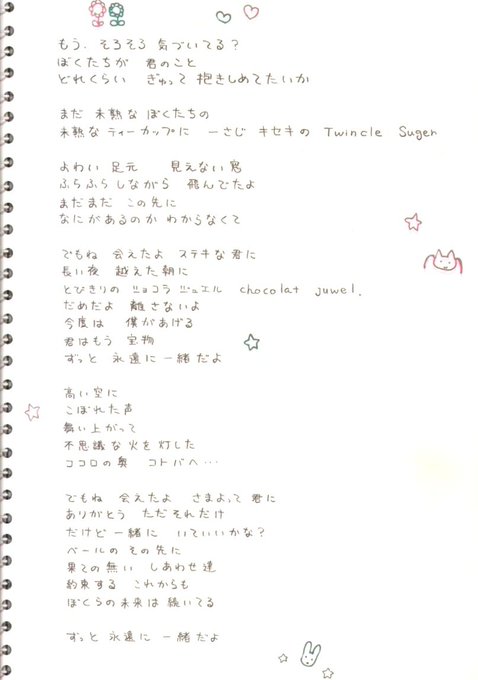 もう、そろそろ 気づいてる?
ぼくたちが 君のこと
どれくらい ぎゅって 抱きしめてたいか
まだ 未熟な ぼくたちの
未熟な ティーカップに 一さじ キセキの Twincle Suger
よわい 足元 見えない 窓
ふらふら しながら 飛んでたよ
まだまだ この先に
なにがあるのか わからなくて
でもね 会えたよ ステキな 君に
長い夜 越えた 朝に
とびきりの ショコラ ジュエル chocolat juwel.
だめだよ 離さないよ
今度は 僕があげる
君はもう 宝物
ずっと 永遠に 一緒だよ
高い 空に
こぼれた 声
舞い上がって
不思議な 火を 灯した
ココロの 奥 コトバへ…
でもね 会えたよ さまよって 君に
ありがとう ただそれだけ
だけど 一緒に いていいかな?
ベールの その先に
果ての 無い しあわせ 達
約束する これからも
ぼくらの 未来は 続いてる
ずっと 永遠に 一緒だよ